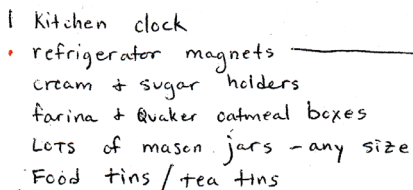 1 Kitchen clock
• refrigerator magnets
cream & sugar holders
farina & Quaker oatmeal boxes
LOTS of mason jars - any size
Food tins / tea tins